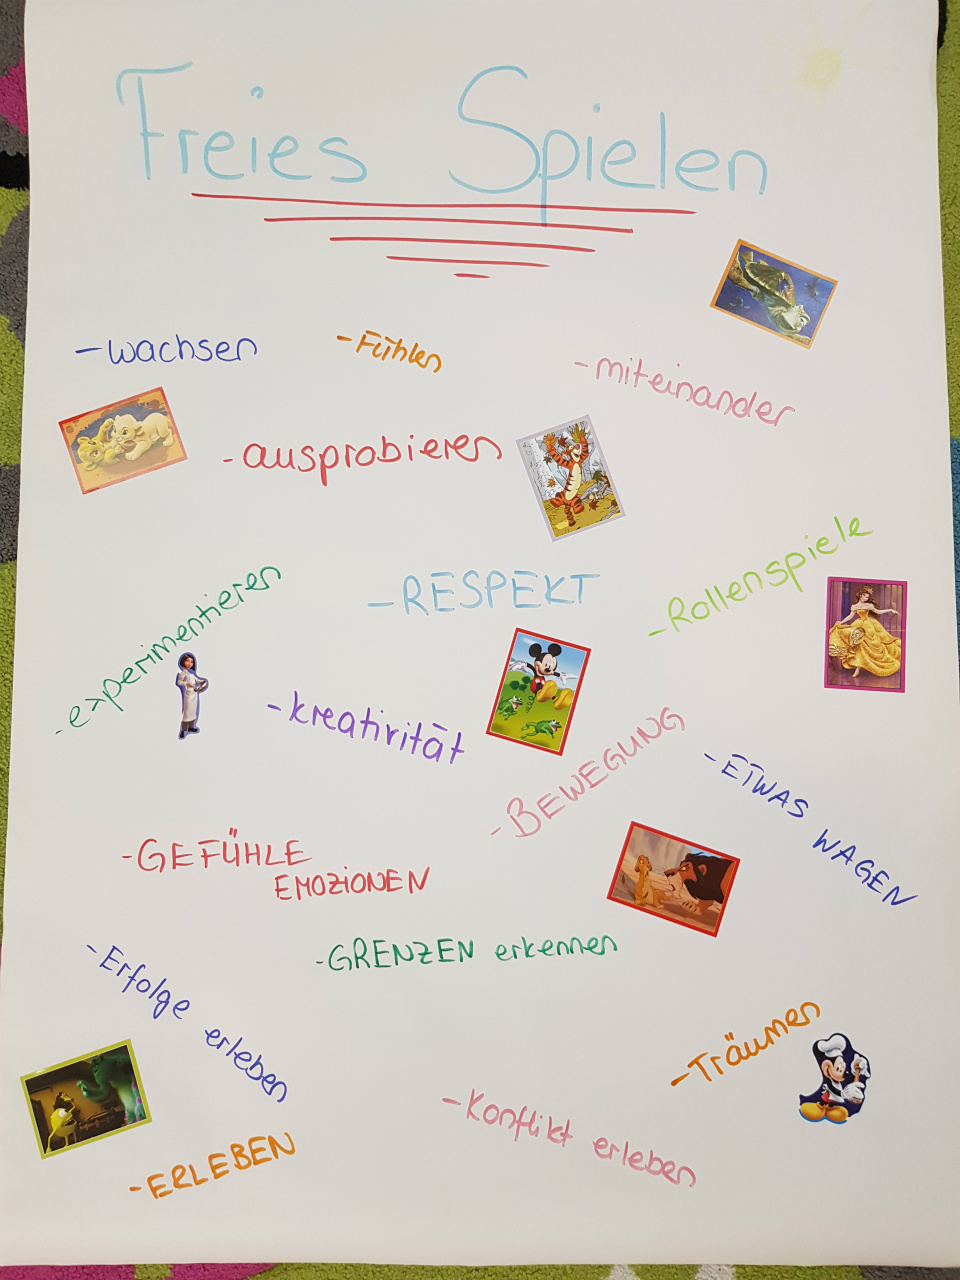 Freies Spielen
- wachsen
- Fühlen
- miteinander
- ausprobieren
- experimentieren
- RESPEKT
- Rollenspiele
- kreativität
- BEWEGUNG
- ETWAS WAGEN
- GEFÜHLE
EMOZIONEN
- GRENZEN erkennen
- Erfolge erleben
- Träumen
- Konflikt erleben
- ERLEBEN